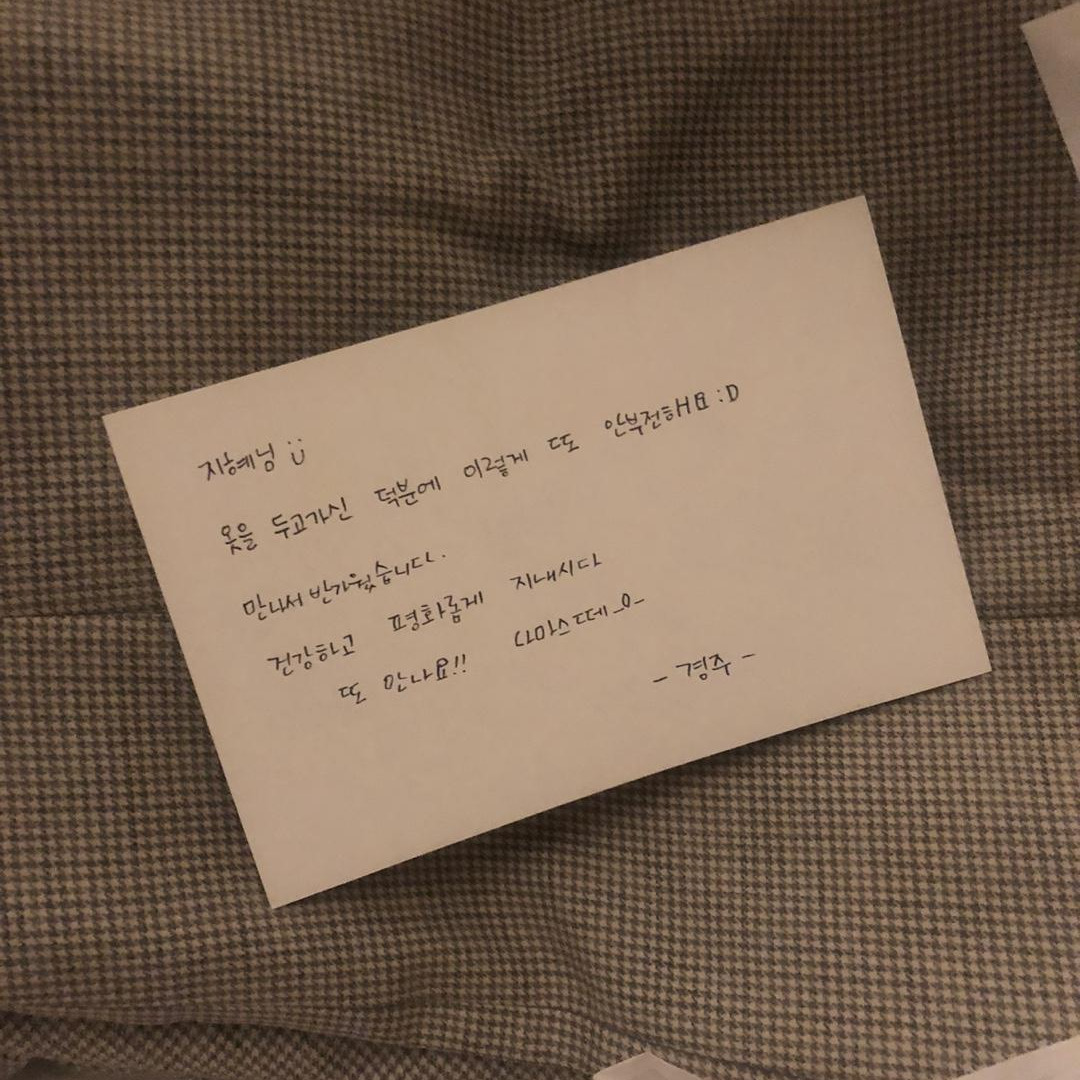 지혜님 :)
옷을 두고가신 덕분에 이렇게 또 안부전해요 :D
만나서 반가웠습니다.
건강하고 평화롭게 지내시다
또 만나요!! 나마스떼 _0_
- 경주 -